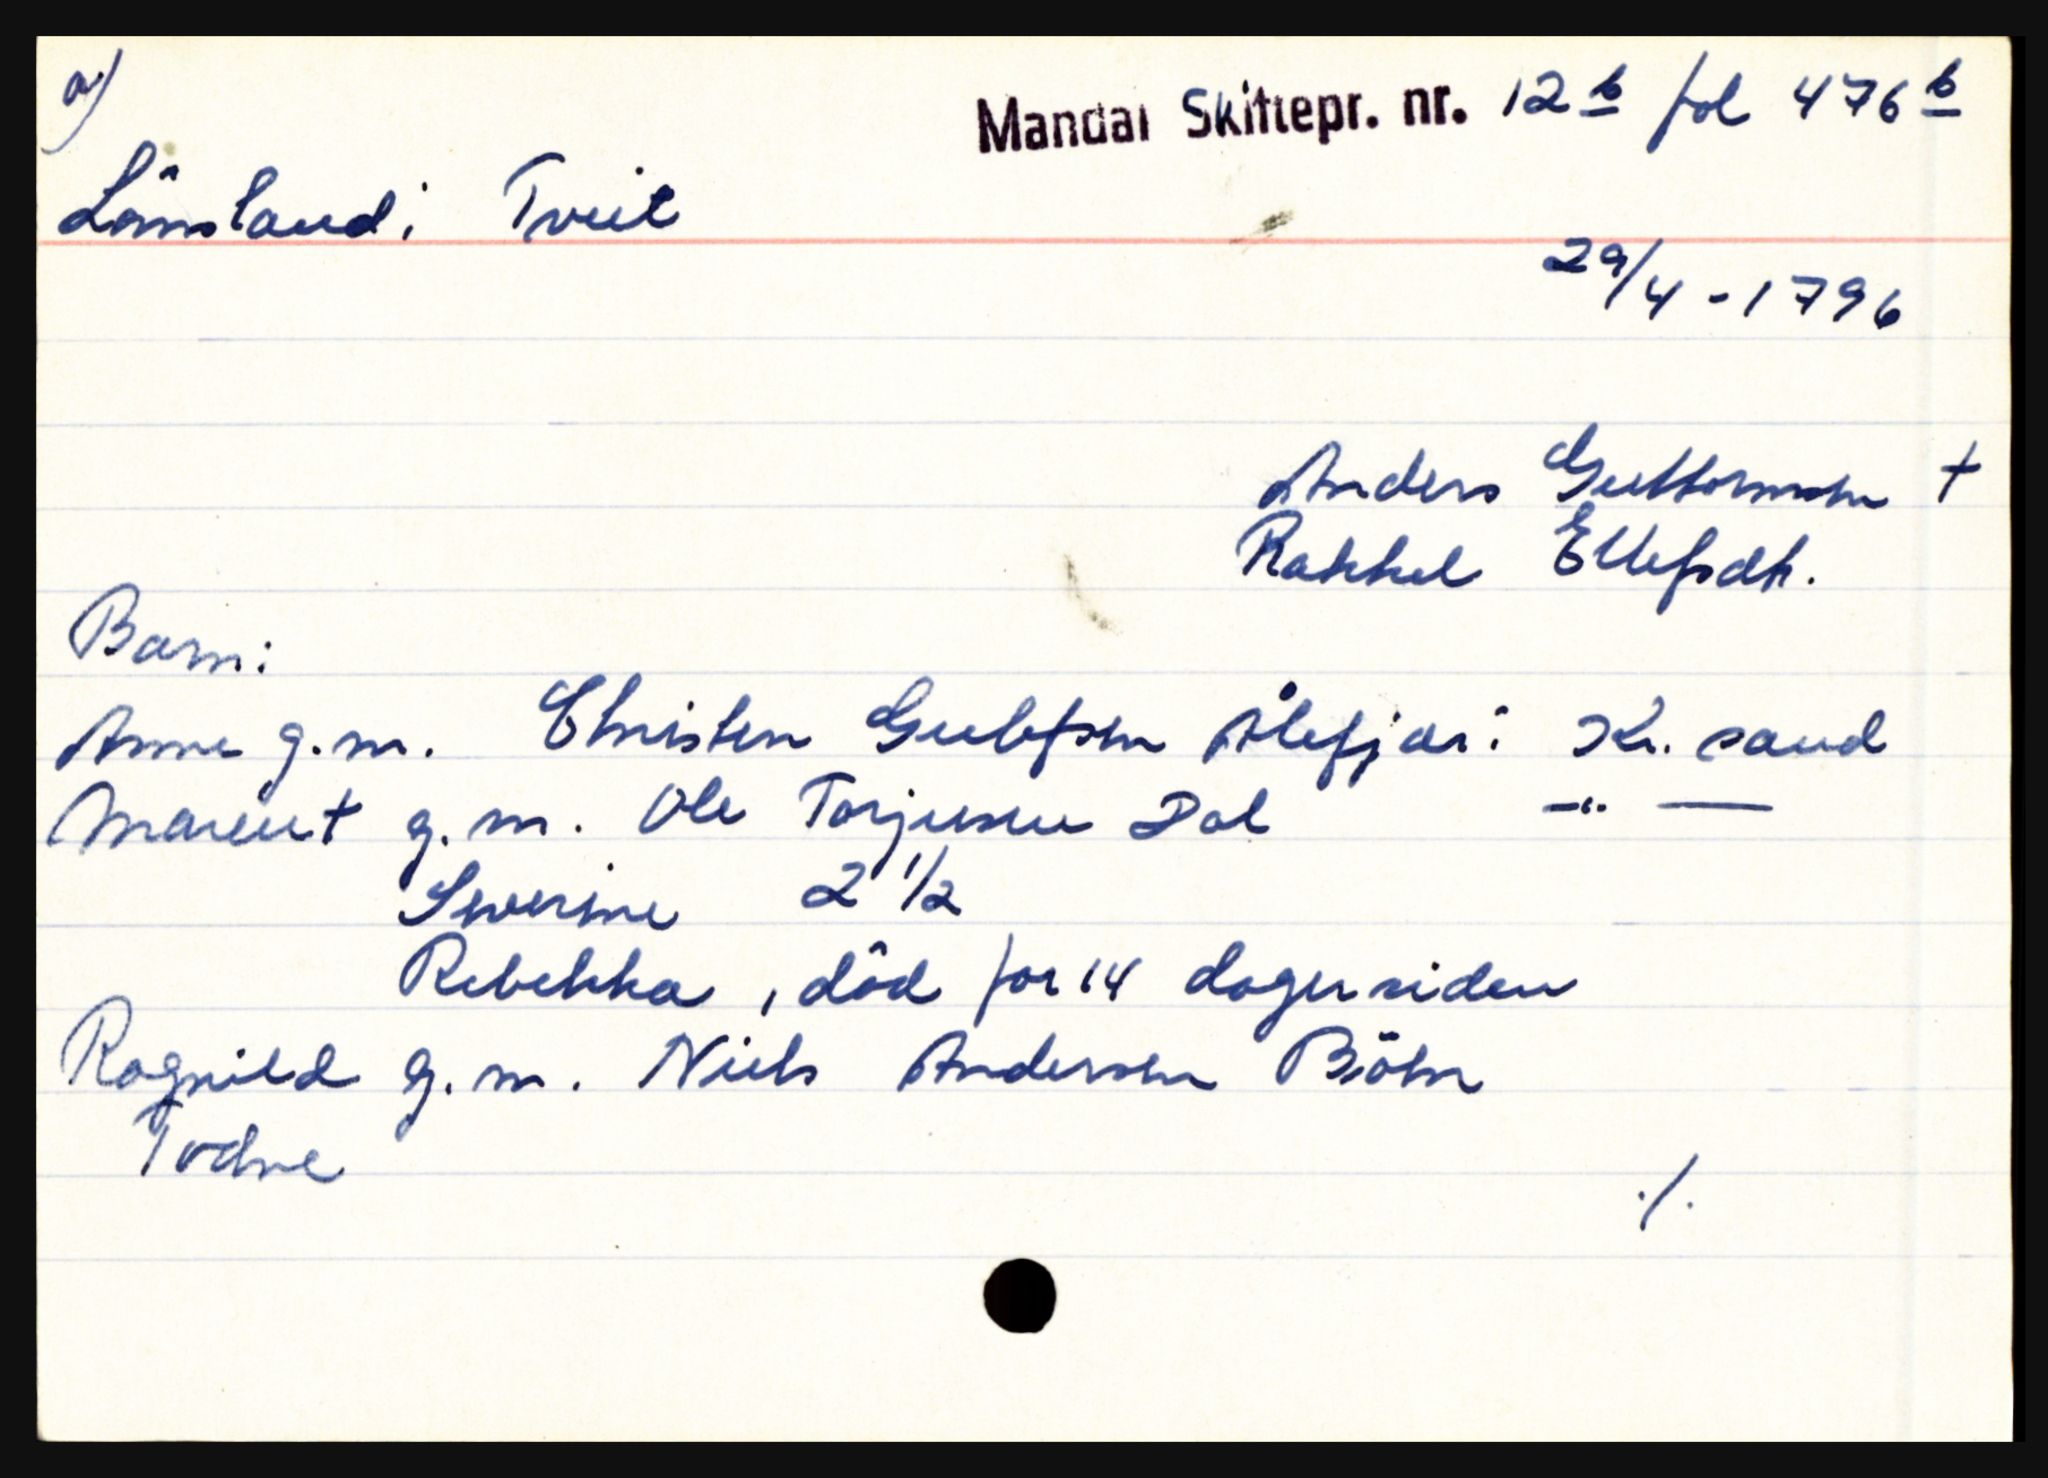 a)
Mandal Skiftepr. nr. 12 b fol 476 b
Lömsland i Tveit
29/4 - 1796
Anders Guttormsen +
Rakkel Ellefsdtr.
Barn:
Anne g. m. Christen Gulefsen Ålefjær i Kr. sand
Maren + g. m. Ole Torjusen Dal —"—
Severine 2 1/2
Rebekka , död for 14 dager siden
Ragnild g. m. Niels Andersen Böen
Todne
./.